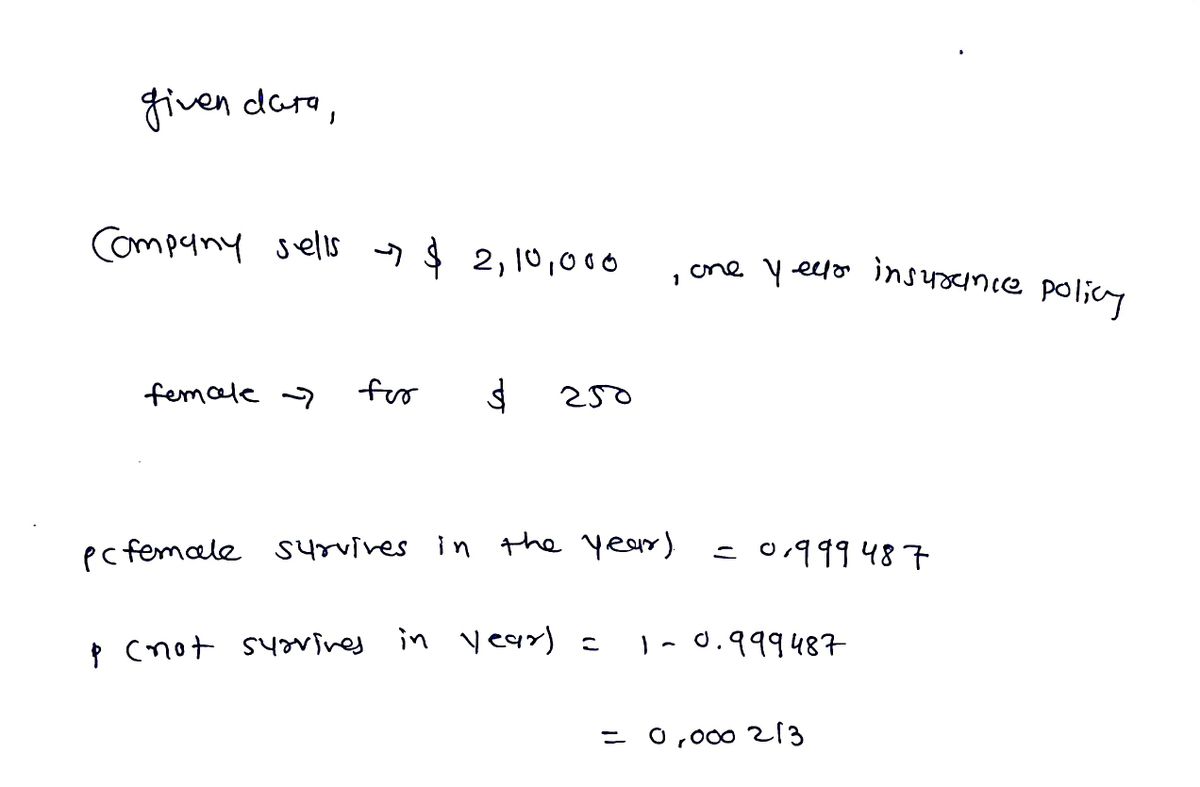 given data,
Company sells → $ 2,10,000 , one year insurance policy
female → for $ 250
p(female survives in the year) = 0.999487
p (not survives in year) = 1 - 0.999487
= 0.000213